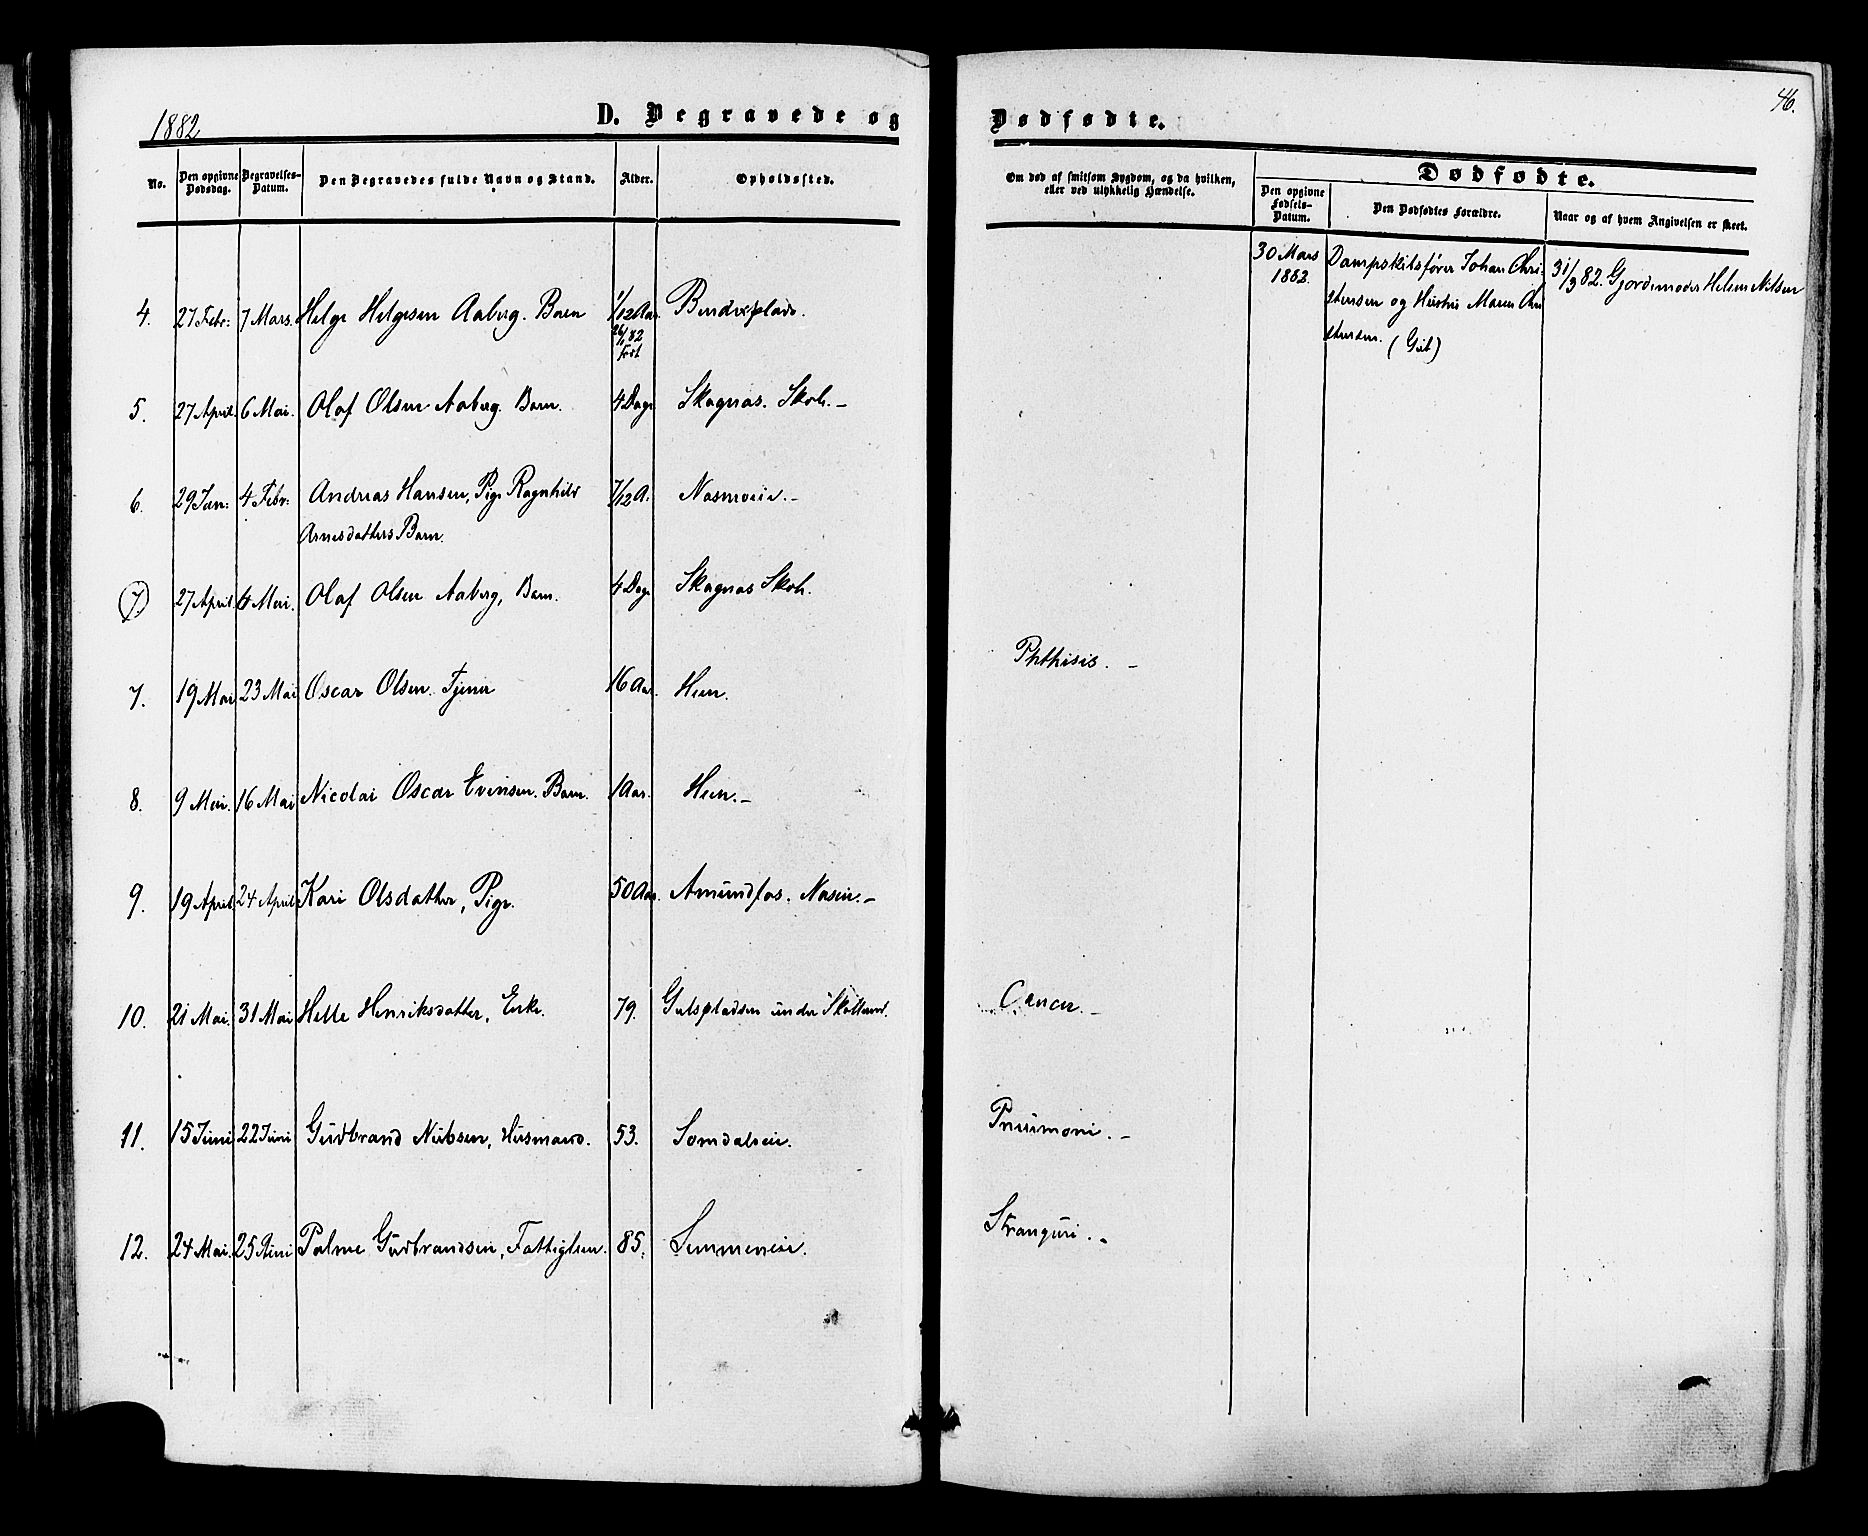 1882
D. Begravede og
Dødfødte.
46.
No.
Den opgivne Dødsdag.
Begravelses-Datum.
Den Begravedes fulde Navn og Stand.
Alder.
Opholdssted.
Om død af smitsom Sygdom, og da hvilken, eller ved ulykkelig Hændelse.
Dødfødte.
Den opgivne Fødsels-Datum.
Den Dødfødtes Forældre.
Naar og af hvem Angivelsen er skeet.
30 Mars 1882.
Dampskibsfører Johan Chri-
stensen og Hustru Maren Chri
stensen. (Gut)
31/3 82. Gjordemoder Helene Nilsen
4. 27 Febr: 7 Mars. Helge Helgesen Aaberg. Barn 1/12 Aar
26/1 82
Født
5. 27 April. 6 Mai. Olaf Olsen Aaberg. Barn. 4 Dage Skagnæs. Skoh.-
6. 29 Jan: 4 Febr: Andreas Hansen, Pige Ragnhild 7/12 A. Næsmoeie.-
Arnesdatters Barn.
7. 27 April 6 Mai. Olaf Olsen Aaberg, Barn. 4 Dage Skagnæs Skoh.
7. 19 Mai 23 Mai Oscar Olsen. Tjener 16 Aar. Heen. Phthisis. -
8. 9 Mai. 16 Mai Nicolai Oscar Evensen. Barn. 1 Aar. Heen.-
9. 19 April. 24 April Kari Olsdatter, Pige. 50 Aar.
10. 21 Mai. 31 Mai Helle Henriksdatter, Enke. 79. Gulspladsen under Cancer. -
11. 15 Juni 22 Juni Gudbrand Nubsen, Husmand. 53. Somdaleie. Pneumoni. -
12. 24 Mai. 25 Juni Palme Gudbrandsen, Fattiglem. 85. Semmeneie. Stranguri. -